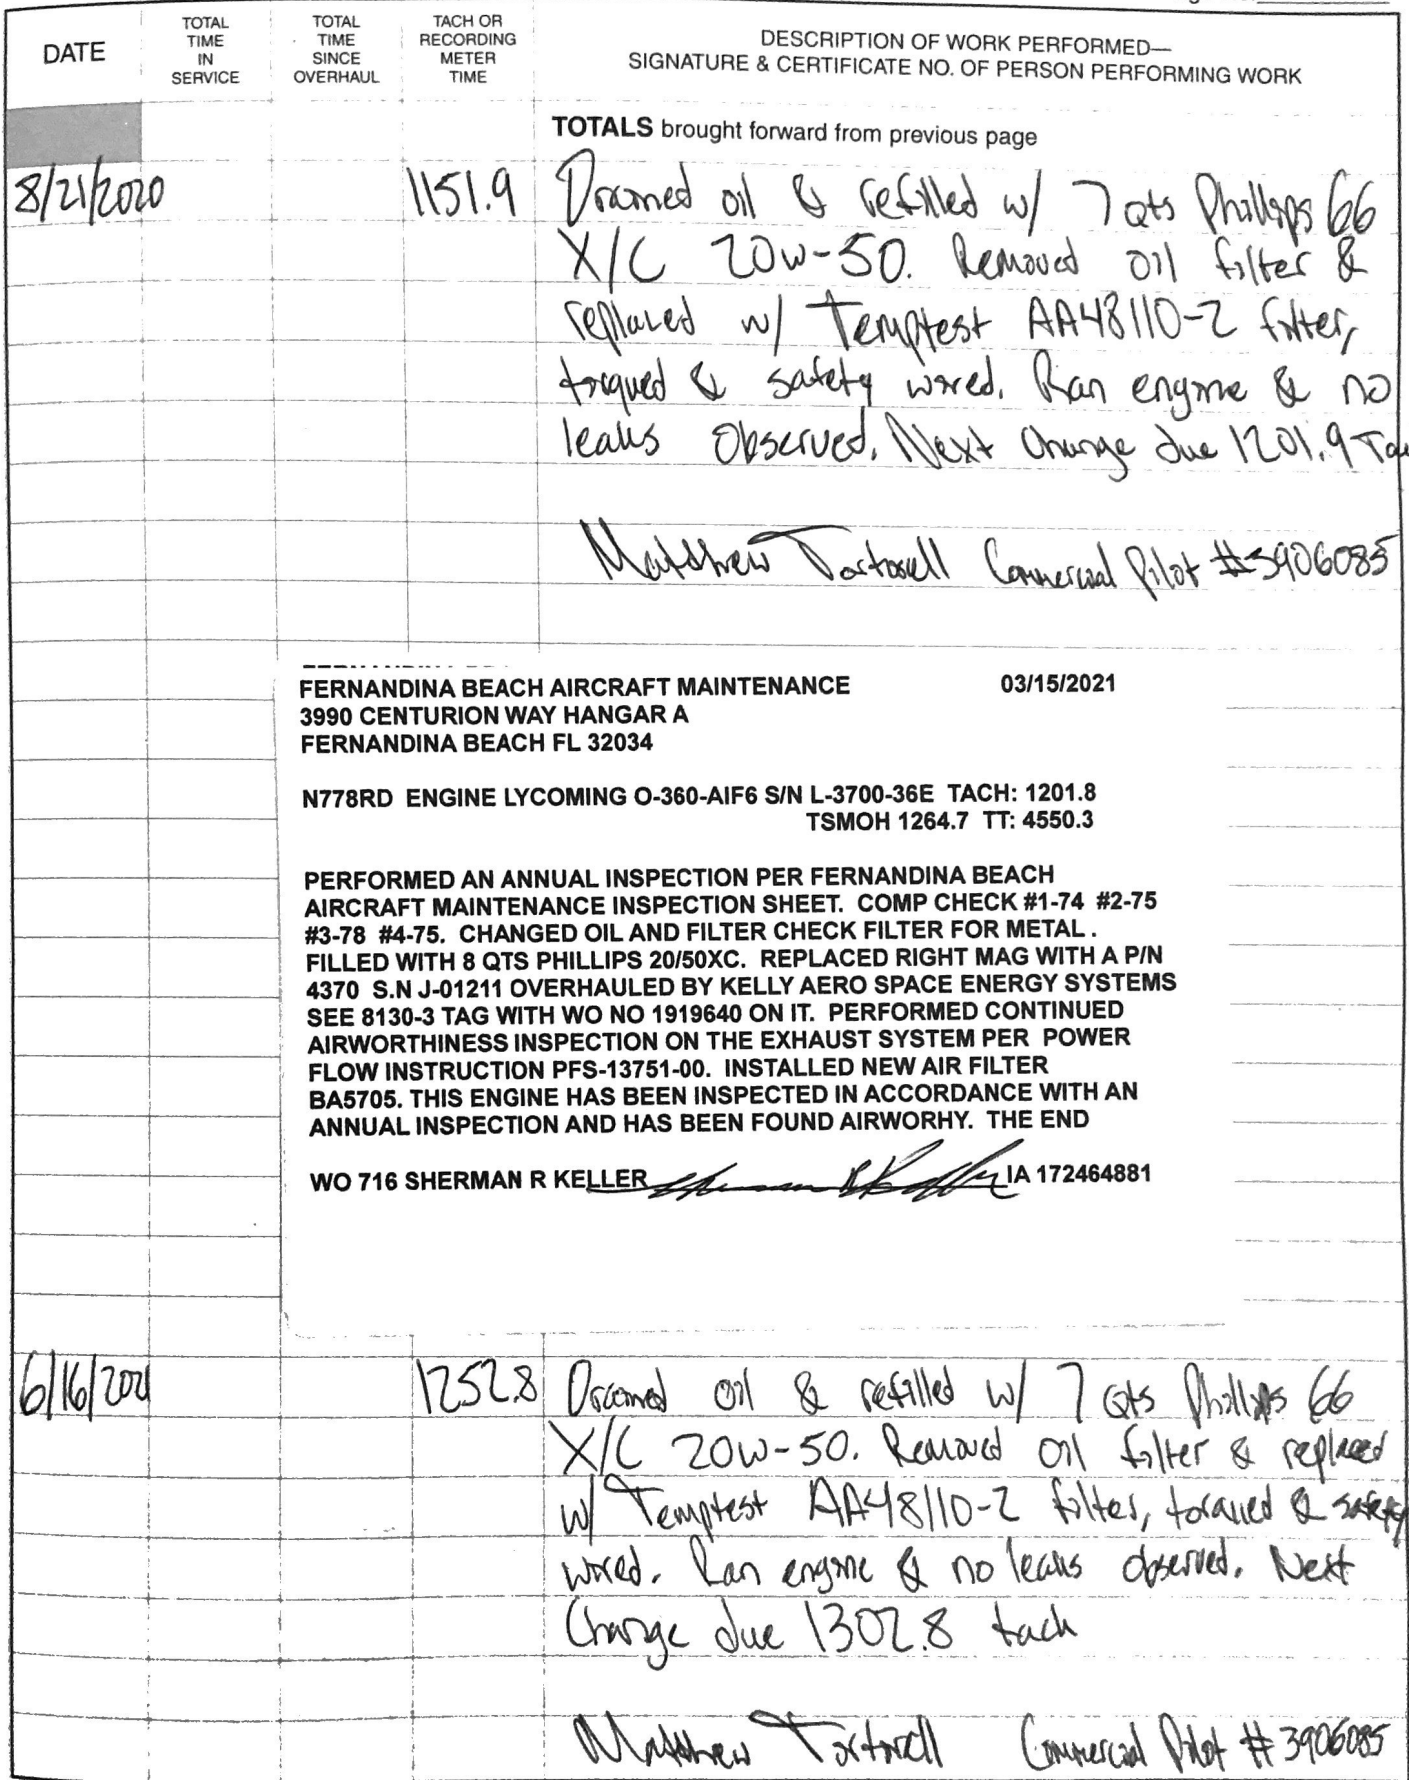 DATE
TOTAL TIME IN SERVICE
TOTAL TIME SINCE OVERHAUL
TACH OR RECORDING METER TIME
DESCRIPTION OF WORK PERFORMED—
SIGNATURE & CERTIFICATE NO. OF PERSON PERFORMING WORK
TOTALS brought forward from previous page
8/21/2020 1151.9 Drained oil & refilled w/ 7 qts Phillips 66
X/C 20w-50. Removed oil filter &
replaced w/ Temptest AA48110-2 filter,
torqued & safety wired. Ran engine & no
leaks observed. Next Change due 1201.9
Matthew Commercial Pilot #3906085
FERNANDINA BEACH AIRCRAFT MAINTENANCE 03/15/2021
3990 CENTURION WAY HANGAR A
FERNANDINA BEACH FL 32034
N778RD ENGINE LYCOMING O-360-AIF6 S/N L-3700-36E TACH: 1201.8
TSMOH 1264.7 TT: 4550.3
PERFORMED AN ANNUAL INSPECTION PER FERNANDINA BEACH
AIRCRAFT MAINTENANCE INSPECTION SHEET. COMP CHECK #1-74 #2-75
#3-78 #4-75. CHANGED OIL AND FILTER CHECK FILTER FOR METAL .
FILLED WITH 8 QTS PHILLIPS 20/50XC. REPLACED RIGHT MAG WITH A P/N
4370 S.N J-01211 OVERHAULED BY KELLY AERO SPACE ENERGY SYSTEMS
SEE 8130-3 TAG WITH WO NO 1919640 ON IT. PERFORMED CONTINUED
AIRWORTHINESS INSPECTION ON THE EXHAUST SYSTEM PER POWER
FLOW INSTRUCTION PFS-13751-00. INSTALLED NEW AIR FILTER
BA5705. THIS ENGINE HAS BEEN INSPECTED IN ACCORDANCE WITH AN
ANNUAL INSPECTION AND HAS BEEN FOUND AIRWORHY. THE END
WO 716 SHERMAN R KELLER IA 172464881
6/16/2021 1252.8 Drained oil & refilled w/ 7 qts Phillips 66
X/C 20w-50. Removed oil filter & replaced
w/ Temptest AA48110-2 filter, torqued & safety
wired. Ran engine & no leaks observed. Next
Change due 1302.8 tach
Matthew Commercial Pilot #3906085